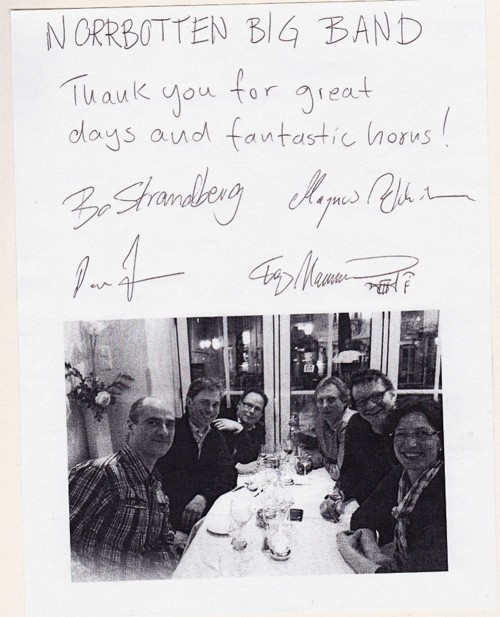 NORRBOTTEN BIG BAND
Thank you for great
days and fantastic horns!
Bo Strandberg Magnus